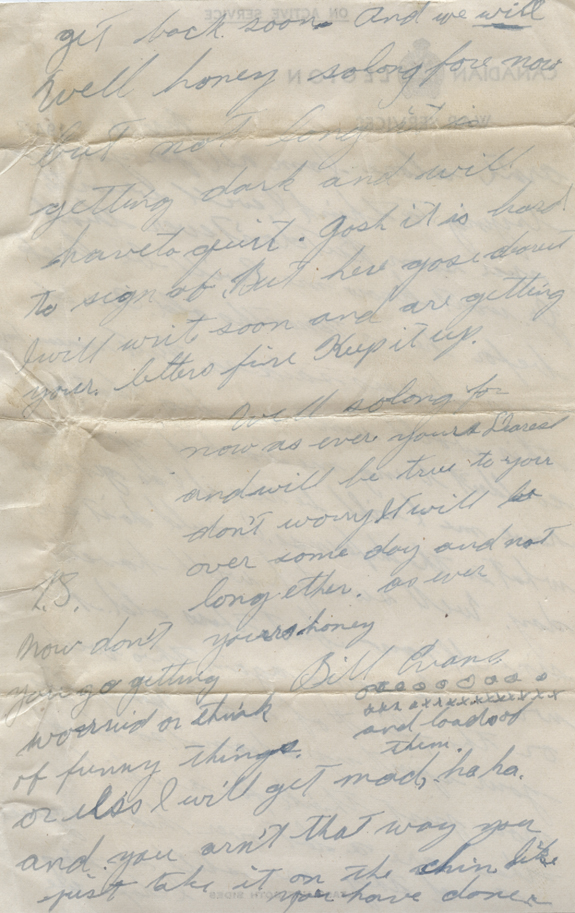 get back soon. And we will
Well honey solong fore now
but not long it is
getting dark and will
haveto quit. Gosh it is hard
to sign of. But here gose dearest
I will writ soon and are getting
your letters fine Keep it up.
Well solong for
now as ever yours Dearest
and will be true to you
don't worry It will be
over some day and not
long ether. as ever
yours honey
Bill Evans
ooooooooo
xxxxxxxxxxxxx
and loads of
them.
P.S.
Now don't
you go getting
worried or think
of funny things.
or elss I will get mad, haha.
and you arn't that way you
just take it on the chin like
you have done
ON ACTIVE SERVICE
CANADIAN LEGION
WAR SERVICES